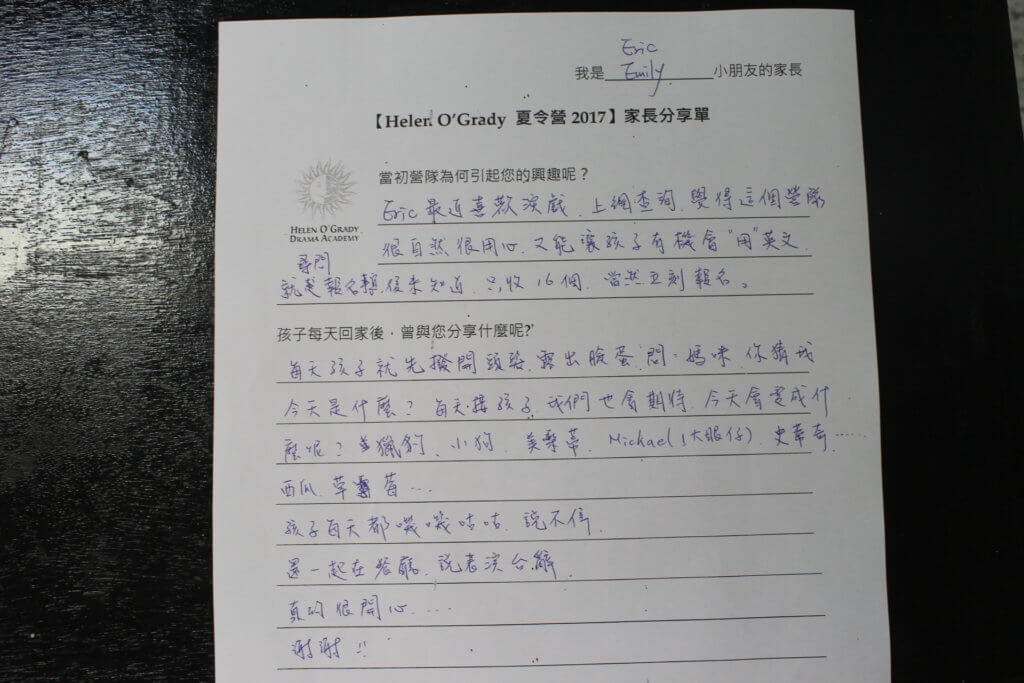 Eric
我是 Emily 小朋友的家長
【Helen O'Grady 夏令營 2017】家長分享單
當初營隊為何引起您的興趣呢？
HELEN O'GRADY
DRAMA ACADEMY
Eric 最近喜歡演戲、上網查詢、覺得這個營隊
很自然很用心、又能讓孩子有機會"用"英文、
尋問
就是報名轉、後來知道、只收16個、當然立刻報名。
孩子每天回家後，曾與您分享什麼呢?'
每天孩子就先撥開頭髮、露出臉蛋、問：媽咪、你猜我
今天是什麼？每天接孩子、我們也會期待、今天會變成什
麼呢？獵豹、小狗、美琴蒂、Michael(大眼仔)、史韋奇……
西瓜、草莓…
孩子每天都嘰嘰咕咕、說不停、
還一起在客廳、說表演台辭、
真的很開心、…
謝謝!!